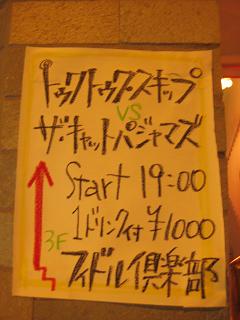 トゥクトゥク・スキップ
VS
ザ・キャットパジャマズ
Start 19:00
1ドリンク付 ¥1000
3F フィドル倶楽部